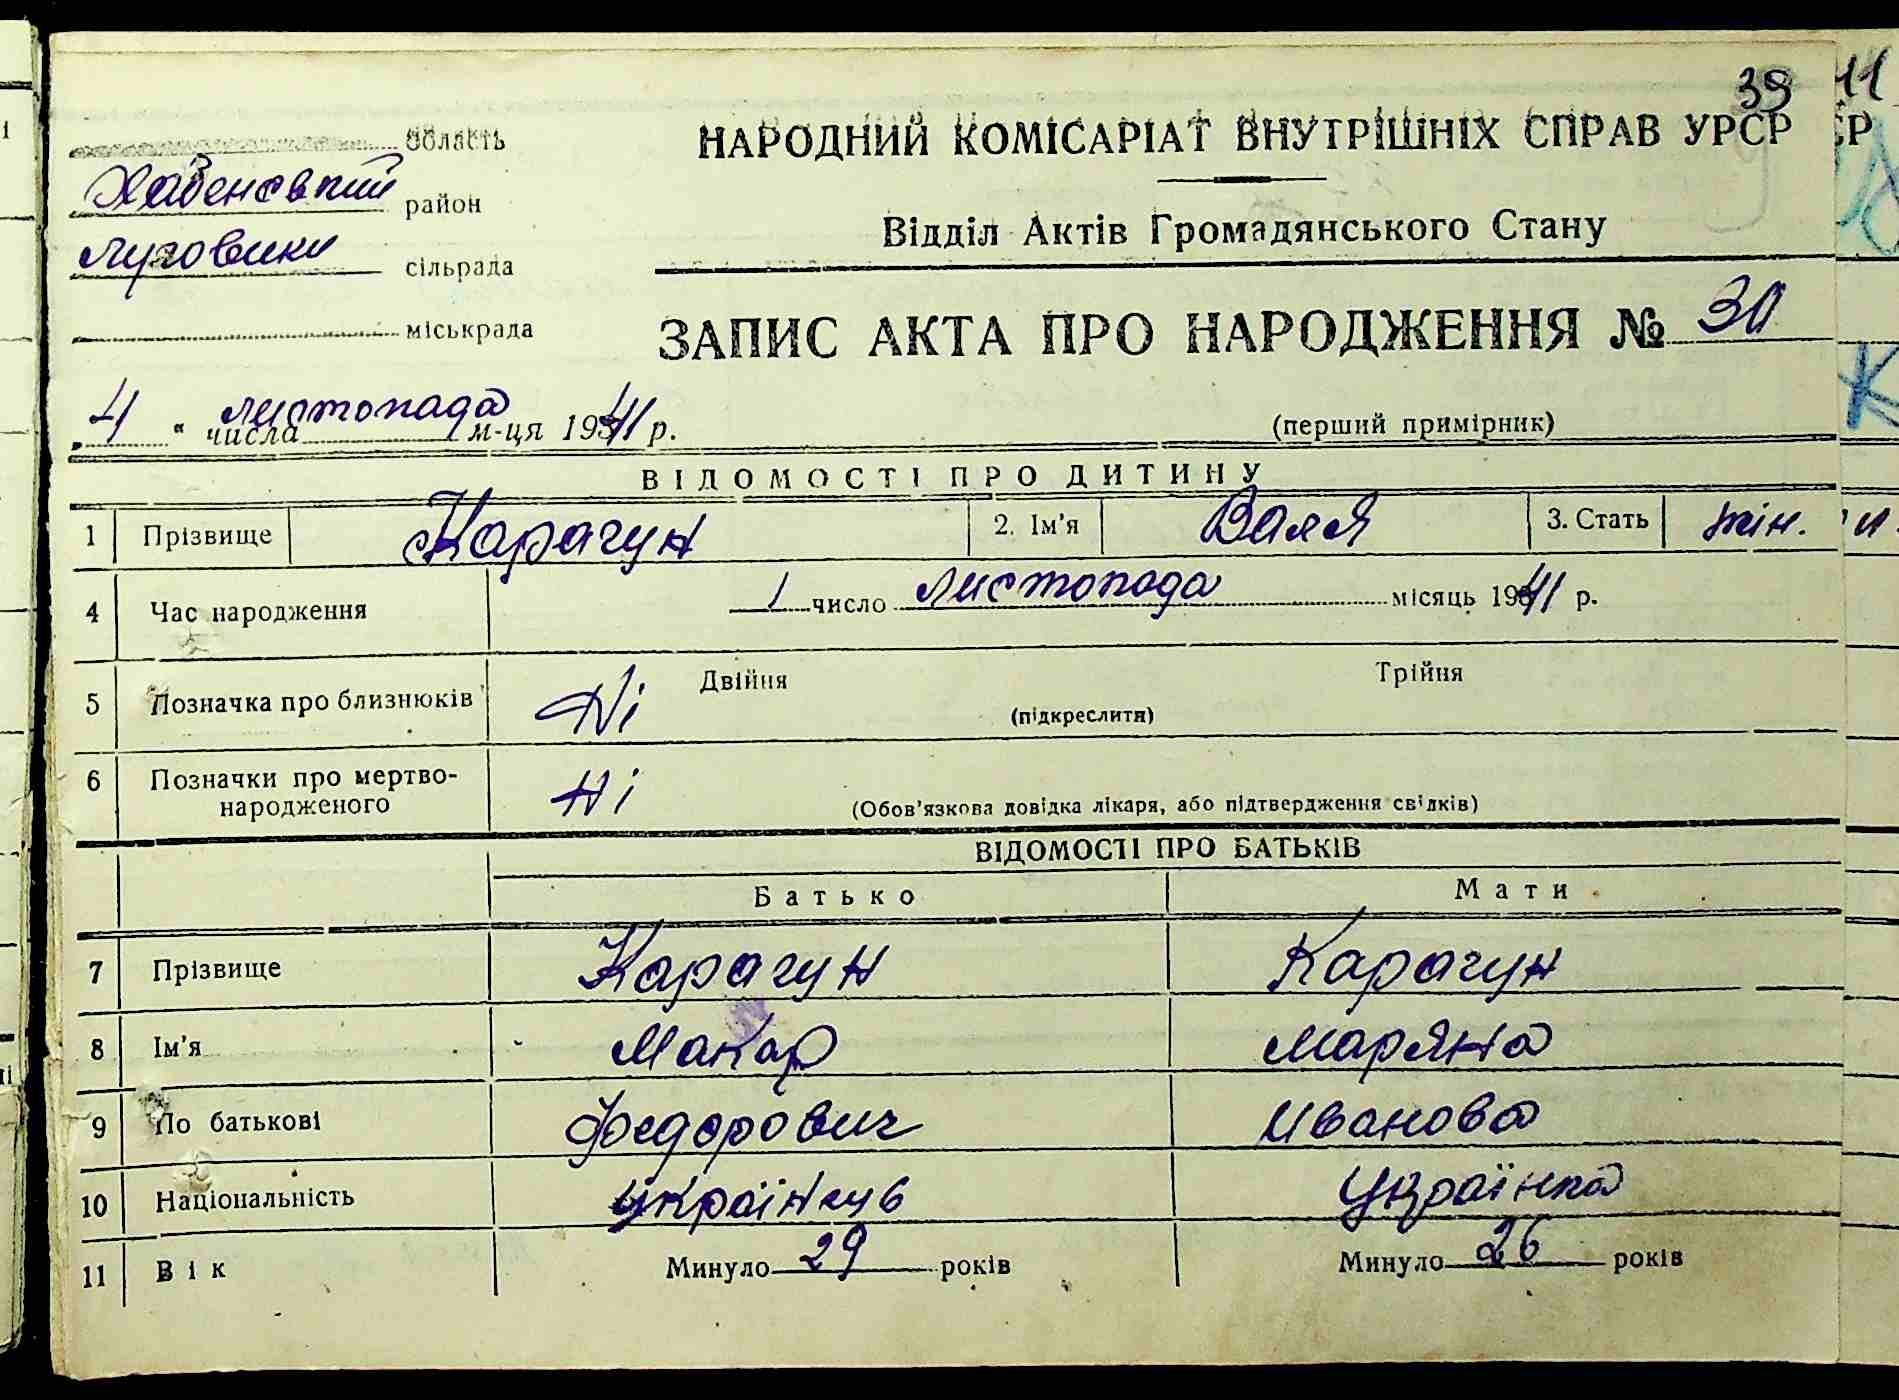 39
область
НАРОДНИЙ КОМІСАРІАТ ВНУТРІШНІХ СПРАВ УРСР
Хабенський район
Відділ Актів Громадянського Стану
Луговики сільрада
міськрада
ЗАПИС АКТА ПРО НАРОДЖЕННЯ № 30
„ 4 “ числа листопада м-ця 1941 р.
(перший примірник)
ВІДОМОСТІ ПРО ДИТИНУ
1 Прізвище Карачун 2. Ім'я Валя 3. Стать жін.
4 Час народження 1 число листопада місяць 1941 р.
5 Позначка про близнюків Ні Двійня Трійня
(підкреслити)
6 Позначки про мертво-
народженого Ні (Обов'язкова довідка лікаря, або підтвердження свідків)
ВІДОМОСТІ ПРО БАТЬКІВ
Батько Мати
7 Прізвище Карачун Карачун
8 Ім'я Макар Маряна
9 По батькові Федорович Иванова
10 Національність українець Українка
11 Вік Минуло 29 років Минуло 26 років